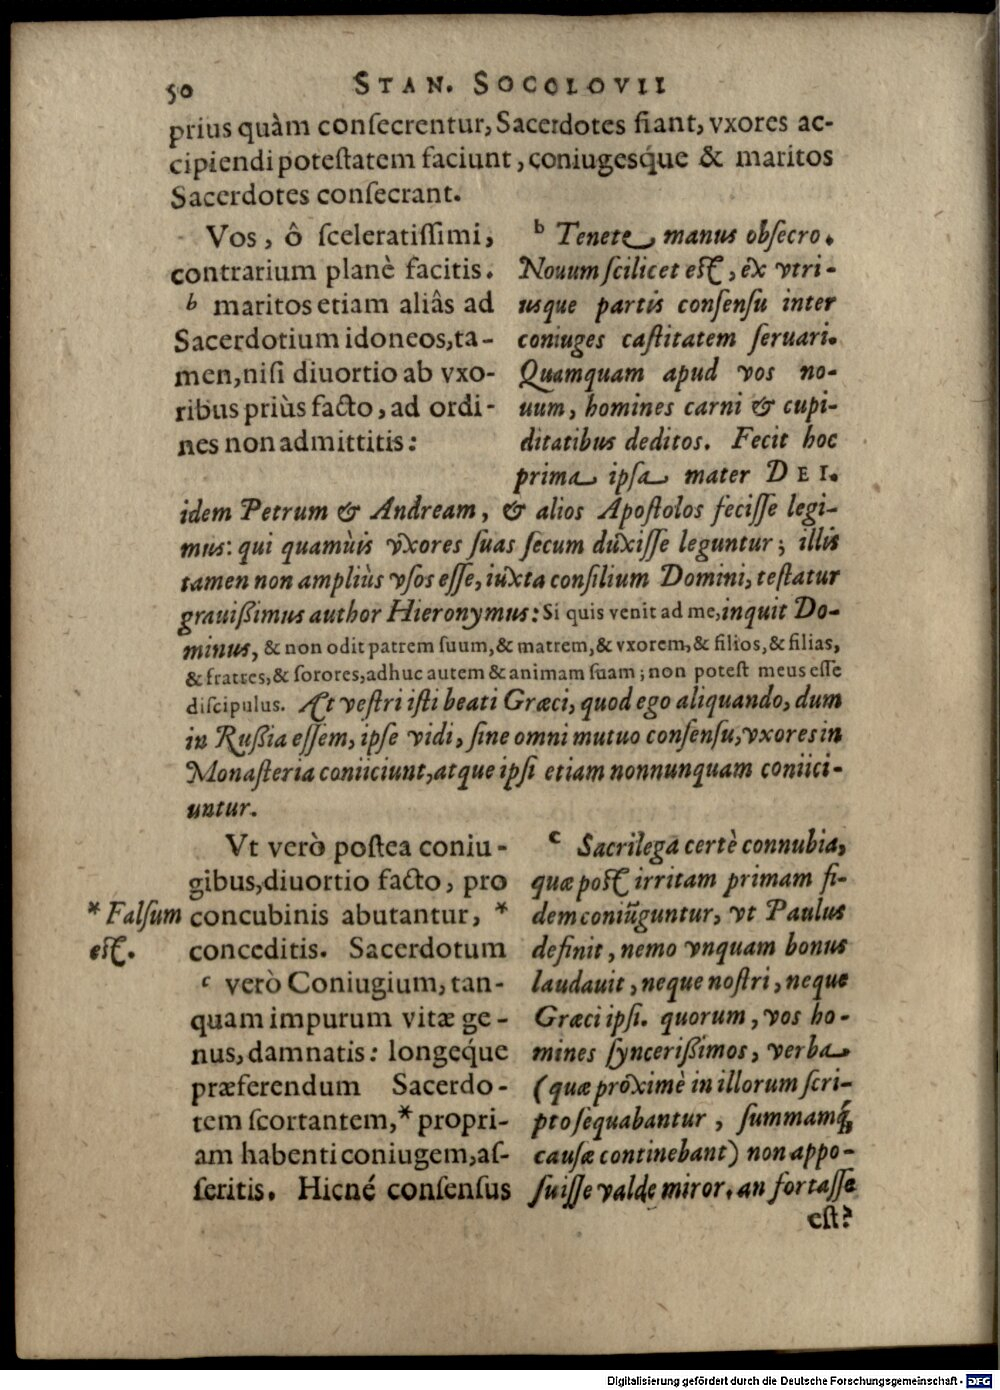 50 STAN. SOCOLOVII
prius quàm conſecrentur, Sacerdotes fiant, vxores ac-
cipiendi poteſtatem faciunt, coniugesq́ue & maritos
Sacerdotes conſecrant.
Vos, ô ſceleratiſſimi,
contrarium planè facitis.
b maritos etiam aliâs ad
Sacerdotium idoneos, ta-
men, niſi diuortio ab vxo-
ribus priùs facto, ad ordi-
nes non admittitis:
b Tenete manus obſecro.
Nouum ſcilicet eſt, ex vtri-
usque partis conſenſu inter
coniuges caſtitatem ſeruari.
Quamquam apud vos no-
uum, homines carni & cupi-
ditatibus deditos. Fecit hoc
prima ipſa mater DEI.
idem Petrum & Andream, & alios Apoſtolos feciſſe legi-
mus: qui quamùis vxores ſuas ſecum duxiſſe leguntur; illis
tamen non ampliùs vſos eſſe, iuxta conſilium Domini, teſtatur
grauißimus author Hieronymus: Si quis venit ad me, inquit Do-
minus, & non odit patrem ſuum, & matrem, & vxorem, & filios, & filias,
& fratres, & ſorores, adhuc autem & animam ſuam; non poteſt meus eſſe
diſcipulus. At veſtri iſti beati Græci, quod ego aliquando, dum
in Rußia eſſem, ipſe vidi, ſine omni mutuo conſenſu, vxores in
Monaſteria coniiciunt, atque ipſi etiam nonnunquam coniici-
untur.
Vt verò poſtea coniu-
gibus, diuortio facto, pro
* Falſum concubinis abutantur, *
eſt. conceditis. Sacerdotum
c verò Coniugium, tan-
quam impurum vitæ ge-
nus, damnatis: longeq́ue
præferendum Sacerdo-
tem ſcortantem, * propri-
am habenti coniugem, aſ-
ſeritis. Hicné conſenſus
c Sacrilega certè connubia,
quæ poſt irritam primam fi-
dem coniũguntur, vt Paulus
definit, nemo vnquam bonus
laudauit, neque noſtri, neque
Græci ipſi. quorum, vos ho-
mines ſyncerißimos, verba
(quæ proximè in illorum ſcri-
pto ſequabantur, ſummamq́;
cauſæ continebant) non appo-
ſuiſſe valde miror. an fortaſſe
eſt?
Digitalisierung gefördert durch die Deutsche Forschungsgemeinschaft - DFG